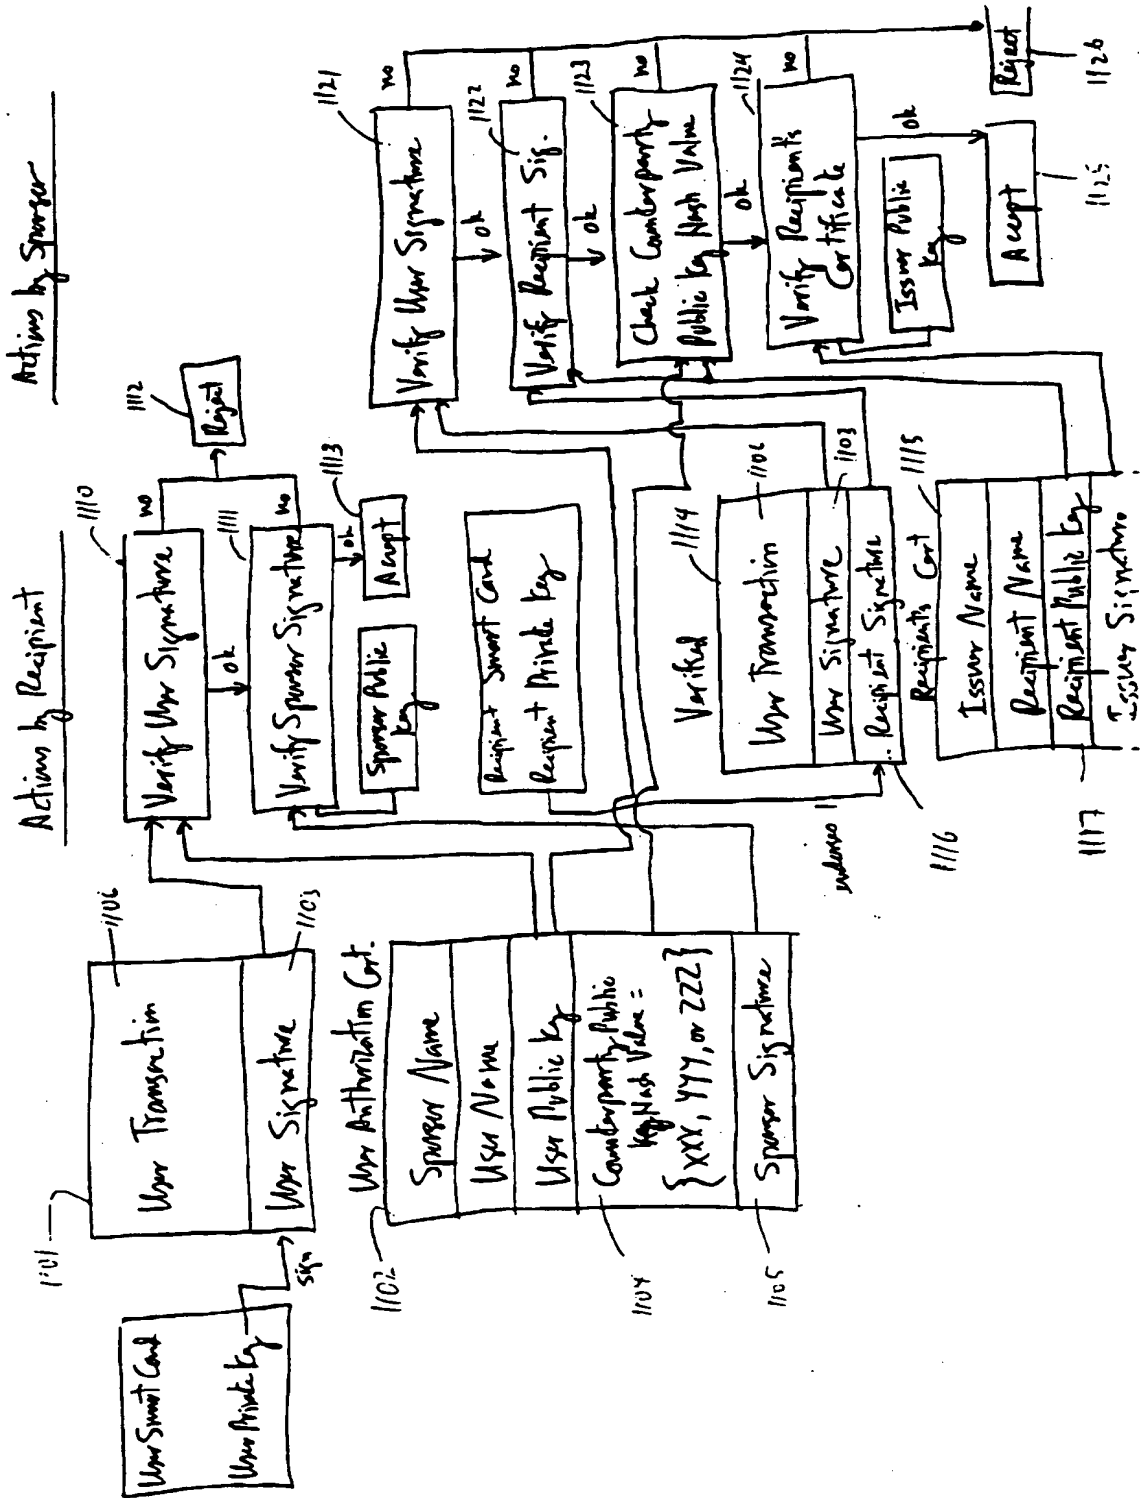 Actions by Recipient
Actions by Sponsor
User Smart Card
User Private Key
sign
1101
User Transaction
1106
User Signature
1103
1102
User Authorization Cert.
Sponsor Name
User Name
User Public Key
Counterparty Public
Key Hash Value =
{XXX, YYY, or ZZZ}
1104
Sponsor Signature
1105
1110
Verify User Signature
no
ok
1111
Verify Sponsor Signature
no
ok
1112
Reject
1113
Accept
Sponsor Public
Key
Recipient Smart Card
Recipient Private Key
Verified
1114
User Transaction
1106
User Signature
1103
Recipient Signature
endorses
1116
Recipients Cert
1115
Issuer Name
Recipient Name
Recipient Public Key
1117
Issuer Signature
1121
Verify User Signature
no
ok
1122
Verify Recipient Sig.
no
ok
1123
Check Counterparty
Public Key Hash Value
no
ok
1124
Verify Recipient's
Certificate
no
ok
Issuer Public
Key
Accept
1125
Reject
1126